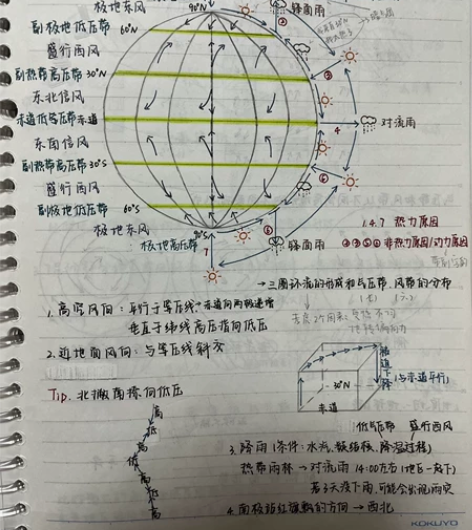 极地东风 90°N 锋面雨
副极地低压带 60°N
盛行西风
副热带高压带 30°N
东北信风
赤道低气压带 赤道 4 对流雨
东南信风
副热带高压带 30°S
盛行西风
副极地低压带 60°S
极地东风 90°S
极地高压带 7 锋面雨
1.4.7 热力原因
②③⑤⑥ 非热力原因/动力原因
→三圈环流的形成和气压带、风带的分布
1.高空风向:平行于等压线
垂直于纬线高压指向低压
2.近地面风向:与等压线斜交
Tip.
高
低
高
低
高
低
高
30°N
赤道
(与赤道平行)
低气压带 盛行西风
3.降雨(条件:水汽、凝结核、降温过程)
热带雨林→对流雨 14:00左右
若3天没下雨,可能会出现雨灾
4.南极站红旗飘的方向→西北
KOKUYO